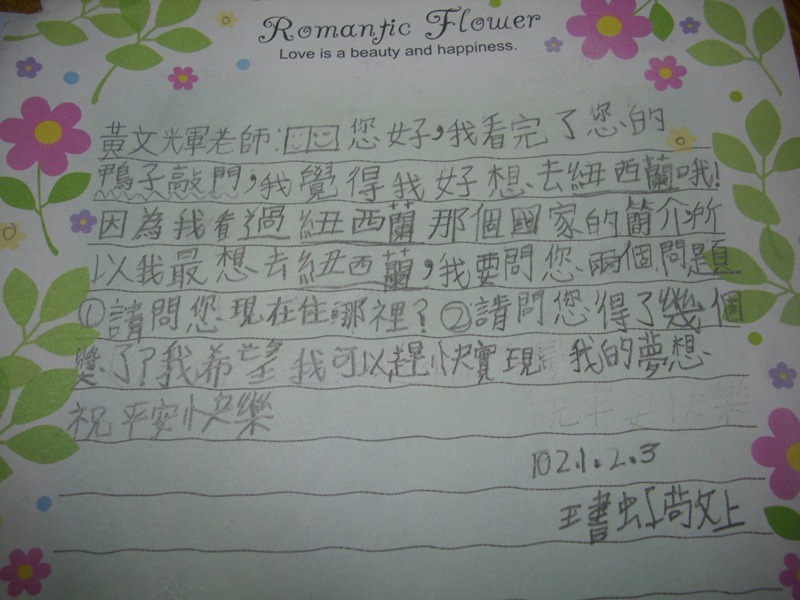 Romantic Flower
Love is a beauty and happiness.
黃文輝老師:您好,我看完了您的
鴨子敲門,我覺得我好想去紐西蘭哦!
因為我看過紐西蘭那個國家的簡介所
以我最想去紐西蘭,我要問您兩個問題
①請問您現在住哪裡?②請問您得了幾個
獎了?我希望我可以趕快實現 我的夢想
祝平安快樂
102.1.2.3
王書虹敬上